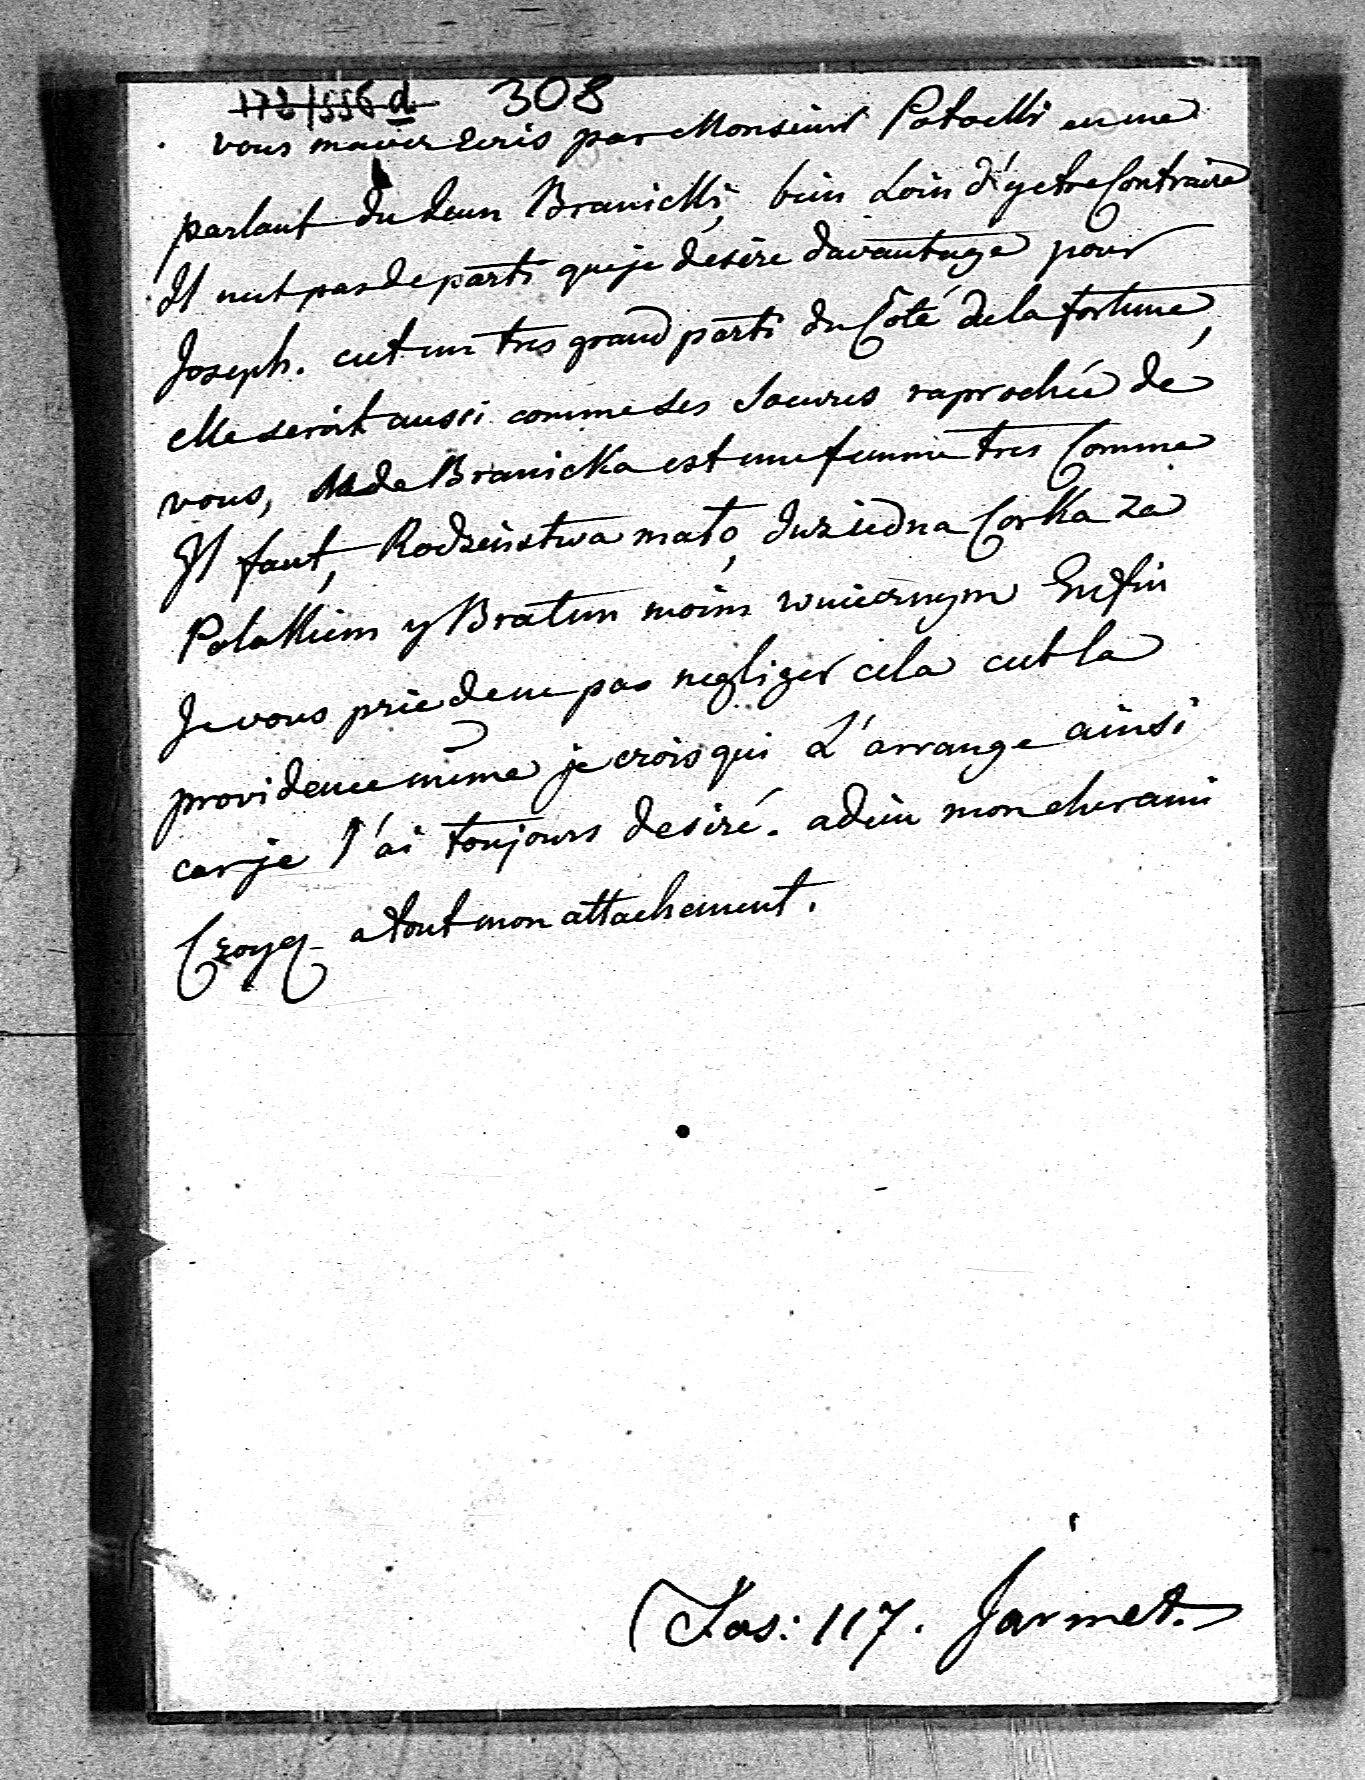 172/556 d 308
vous mavez ecris par Monsieur Potocki en me
parlant du Jeun Branicki, bien Loin d'y etre Contraire
Il nest pas de parti que je desire davantage pour
Joseph. cest un tres grand parti du Coté de la fortune,
elle seroit aussi comme ses Soeures raprochée de
vous, Mde Branicka est une femme tres Comme
Il faut, Rodzenstwa mato, Corka za
Polakiem y Bratem moim Enfin
Je vous prie de ne pas negliger cela cest la
providence même je crois qui L'arrange ainsi
car je l'ai toujours desiré. adieu mon cher ami
Croyez a tout mon attachement.
Fas: 117. Jarmet.